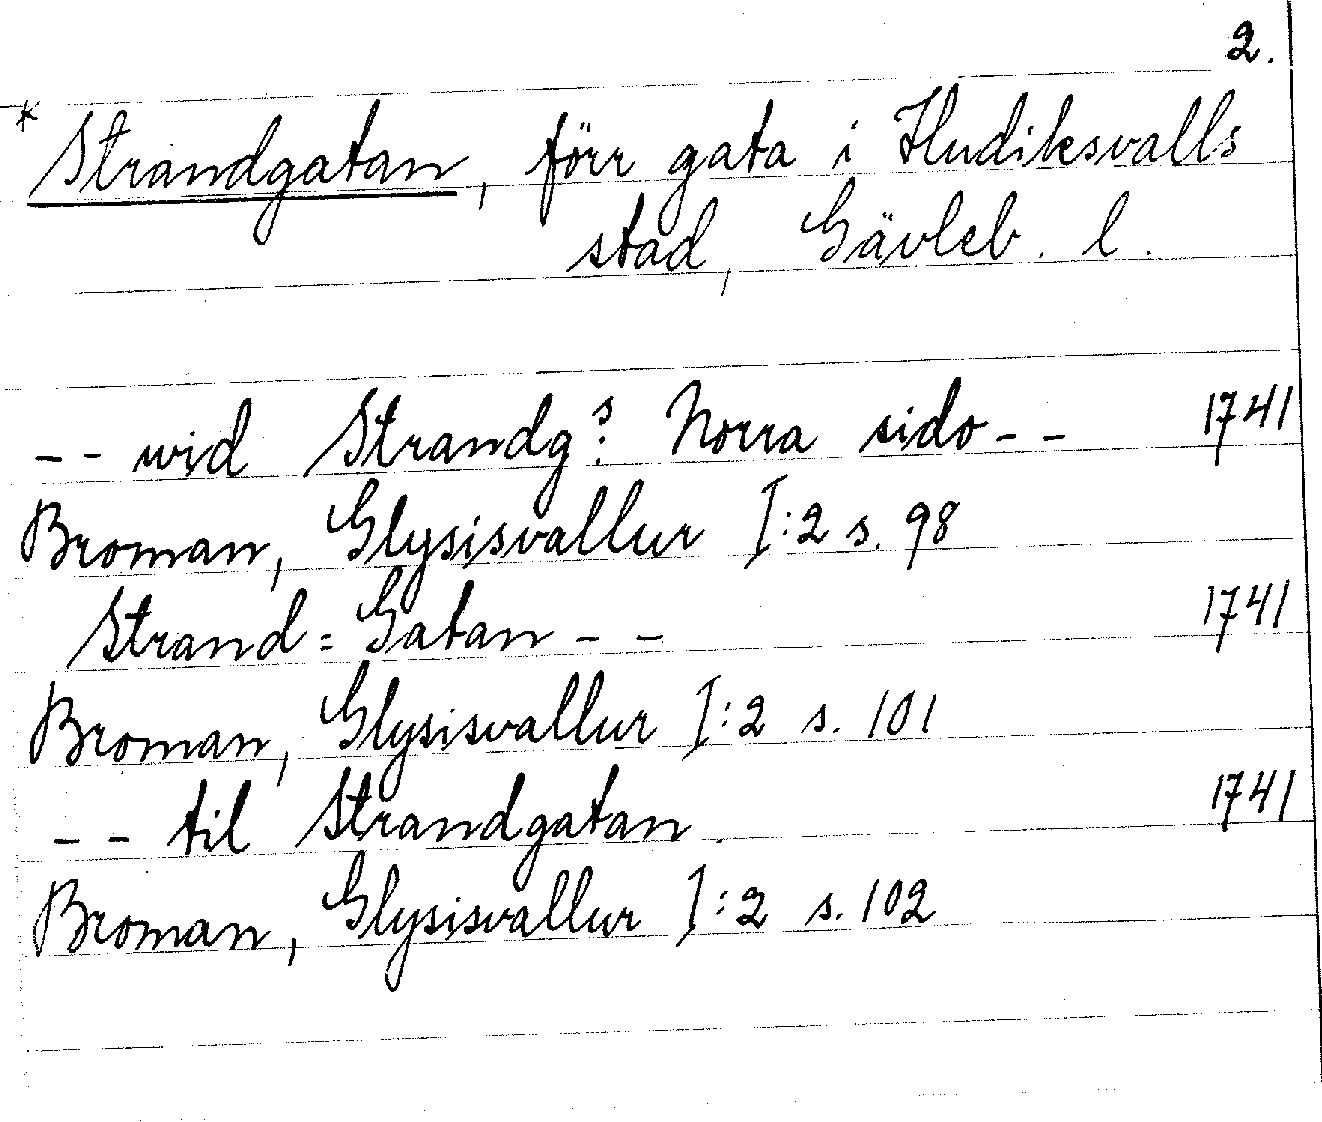 2.
* Strandgatan, förr gata i Hudiksvalls
stad, Gävleb. l.
-- wid Strandg:s Norra sido -- 1741
Broman, Glysisvallur I:2 s. 98
Strand=Gatan -- 1741
Broman, Glysisvallur I:2 s. 101
-- til Strandgatan 1741
Broman, Glysisvallur I:2 s. 102